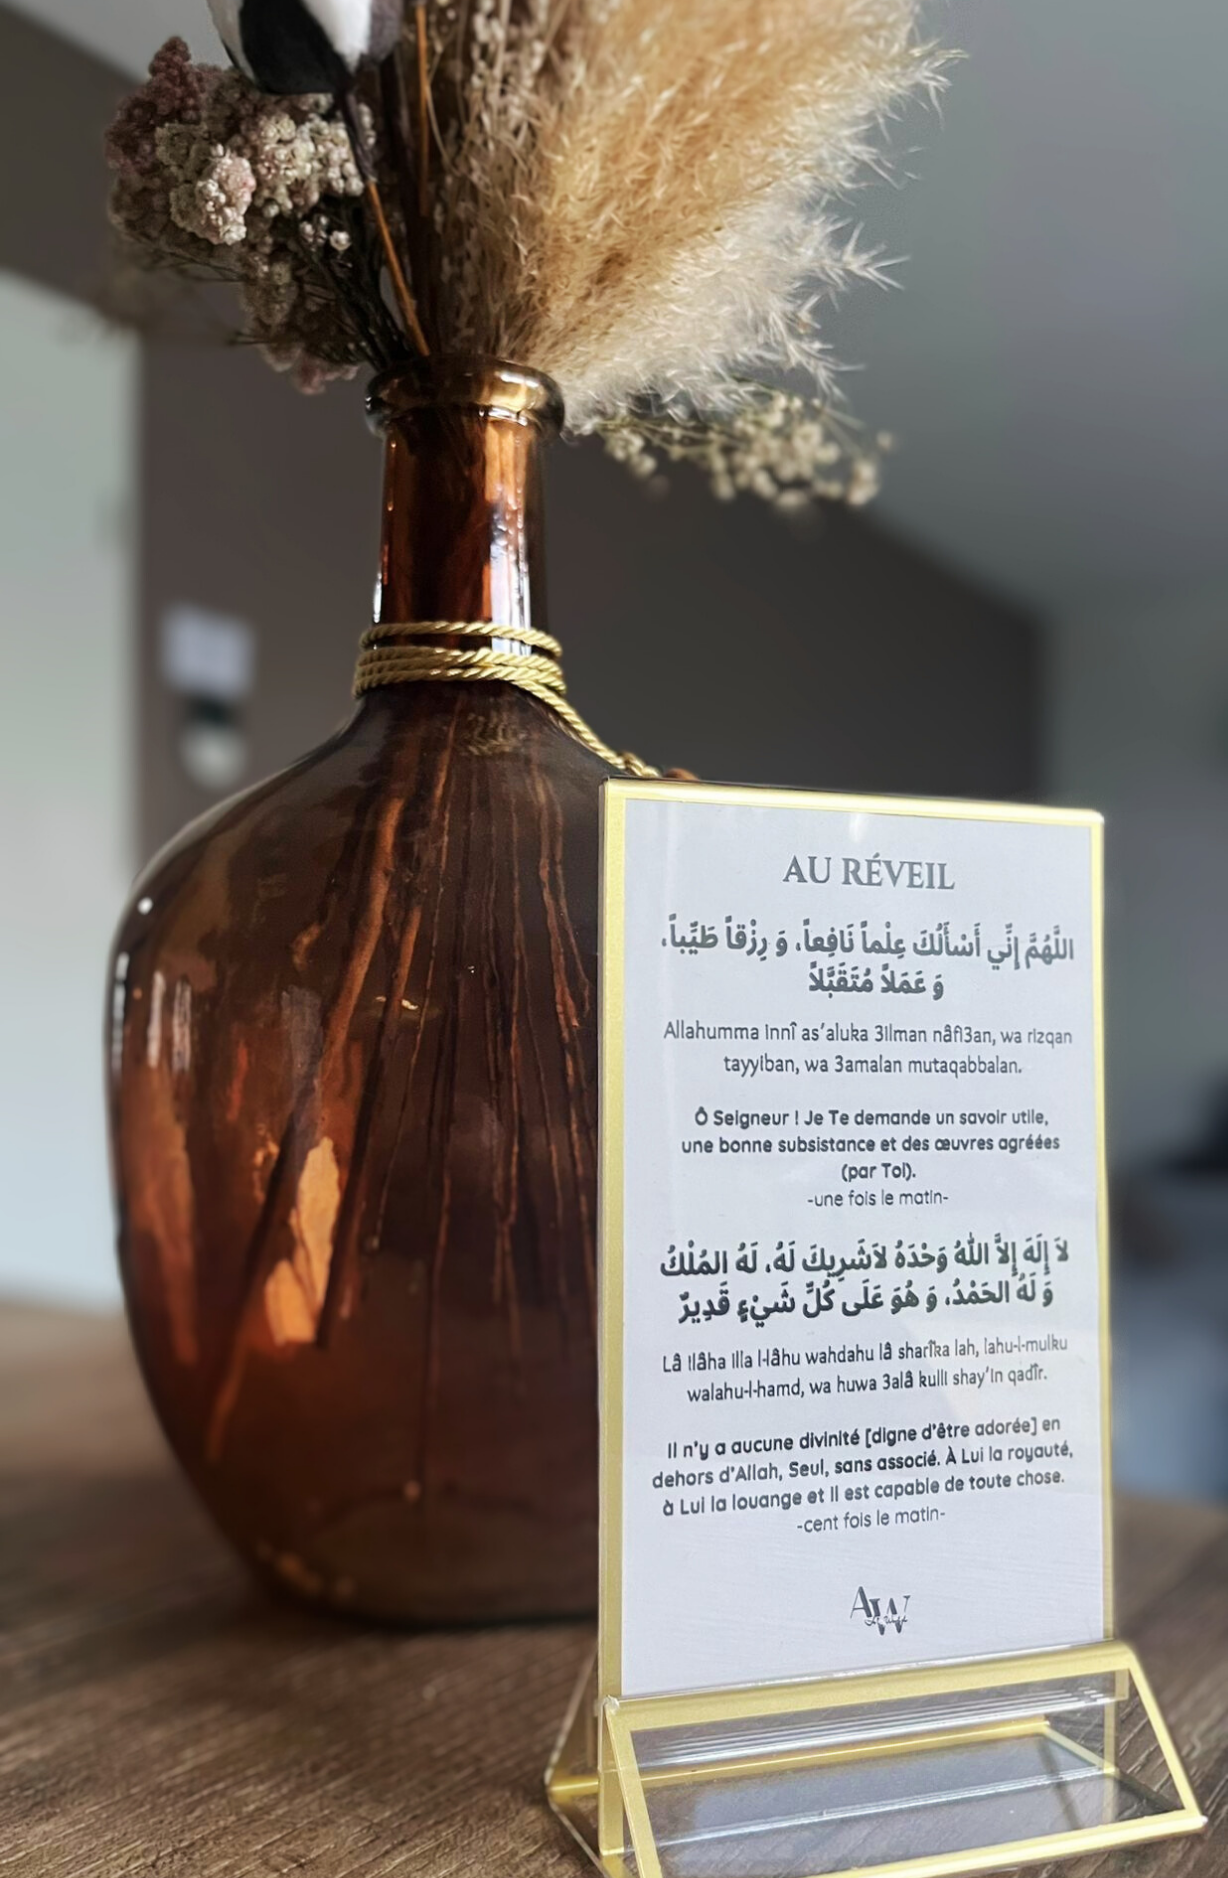 AU RÉVEIL
اللَّهُمَّ إِنِّي أَسْأَلُكَ عِلْماً نَافِعاً، وَ رِزْقاً طَيِّباً،
وَ عَمَلاً مُتَقَبَّلاً
Allahumma innî as'aluka 3ilman nâfi3an, wa rizqan
tayyiban, wa 3amalan mutaqabbalan.
Ô Seigneur ! Je Te demande un savoir utile,
une bonne subsistance et des œuvres agréées
(par Toi).
-une fois le matin-
لاَ إِلَهَ إِلاَّ اللَّهُ وَحْدَهُ لاَشَرِيكَ لَهُ، لَهُ المُلْكُ
وَ لَهُ الحَمْدُ، وَ هُوَ عَلَى كُلِّ شَيْءٍ قَدِيرٌ
Lâ ilâha illa l-lâhu wahdahu lâ sharîka lah, lahu-l-mulku
walahu-l-hamd, wa huwa 3alâ kulli shay'in qadîr.
Il n'y a aucune divinité [digne d'être adorée] en
dehors d'Allah, Seul, sans associé. À Lui la royauté,
à Lui la louange et Il est capable de toute chose.
-cent fois le matin-
AW